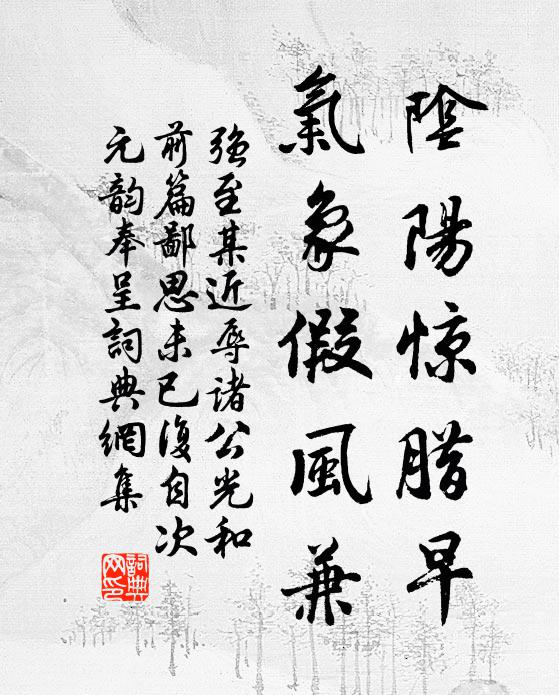 陰陽惊腊早
氣象假風兼
強至某近辱諸公光和
前篇鄙思未已復自次
元韵奉呈詞典網集
詞典
网印